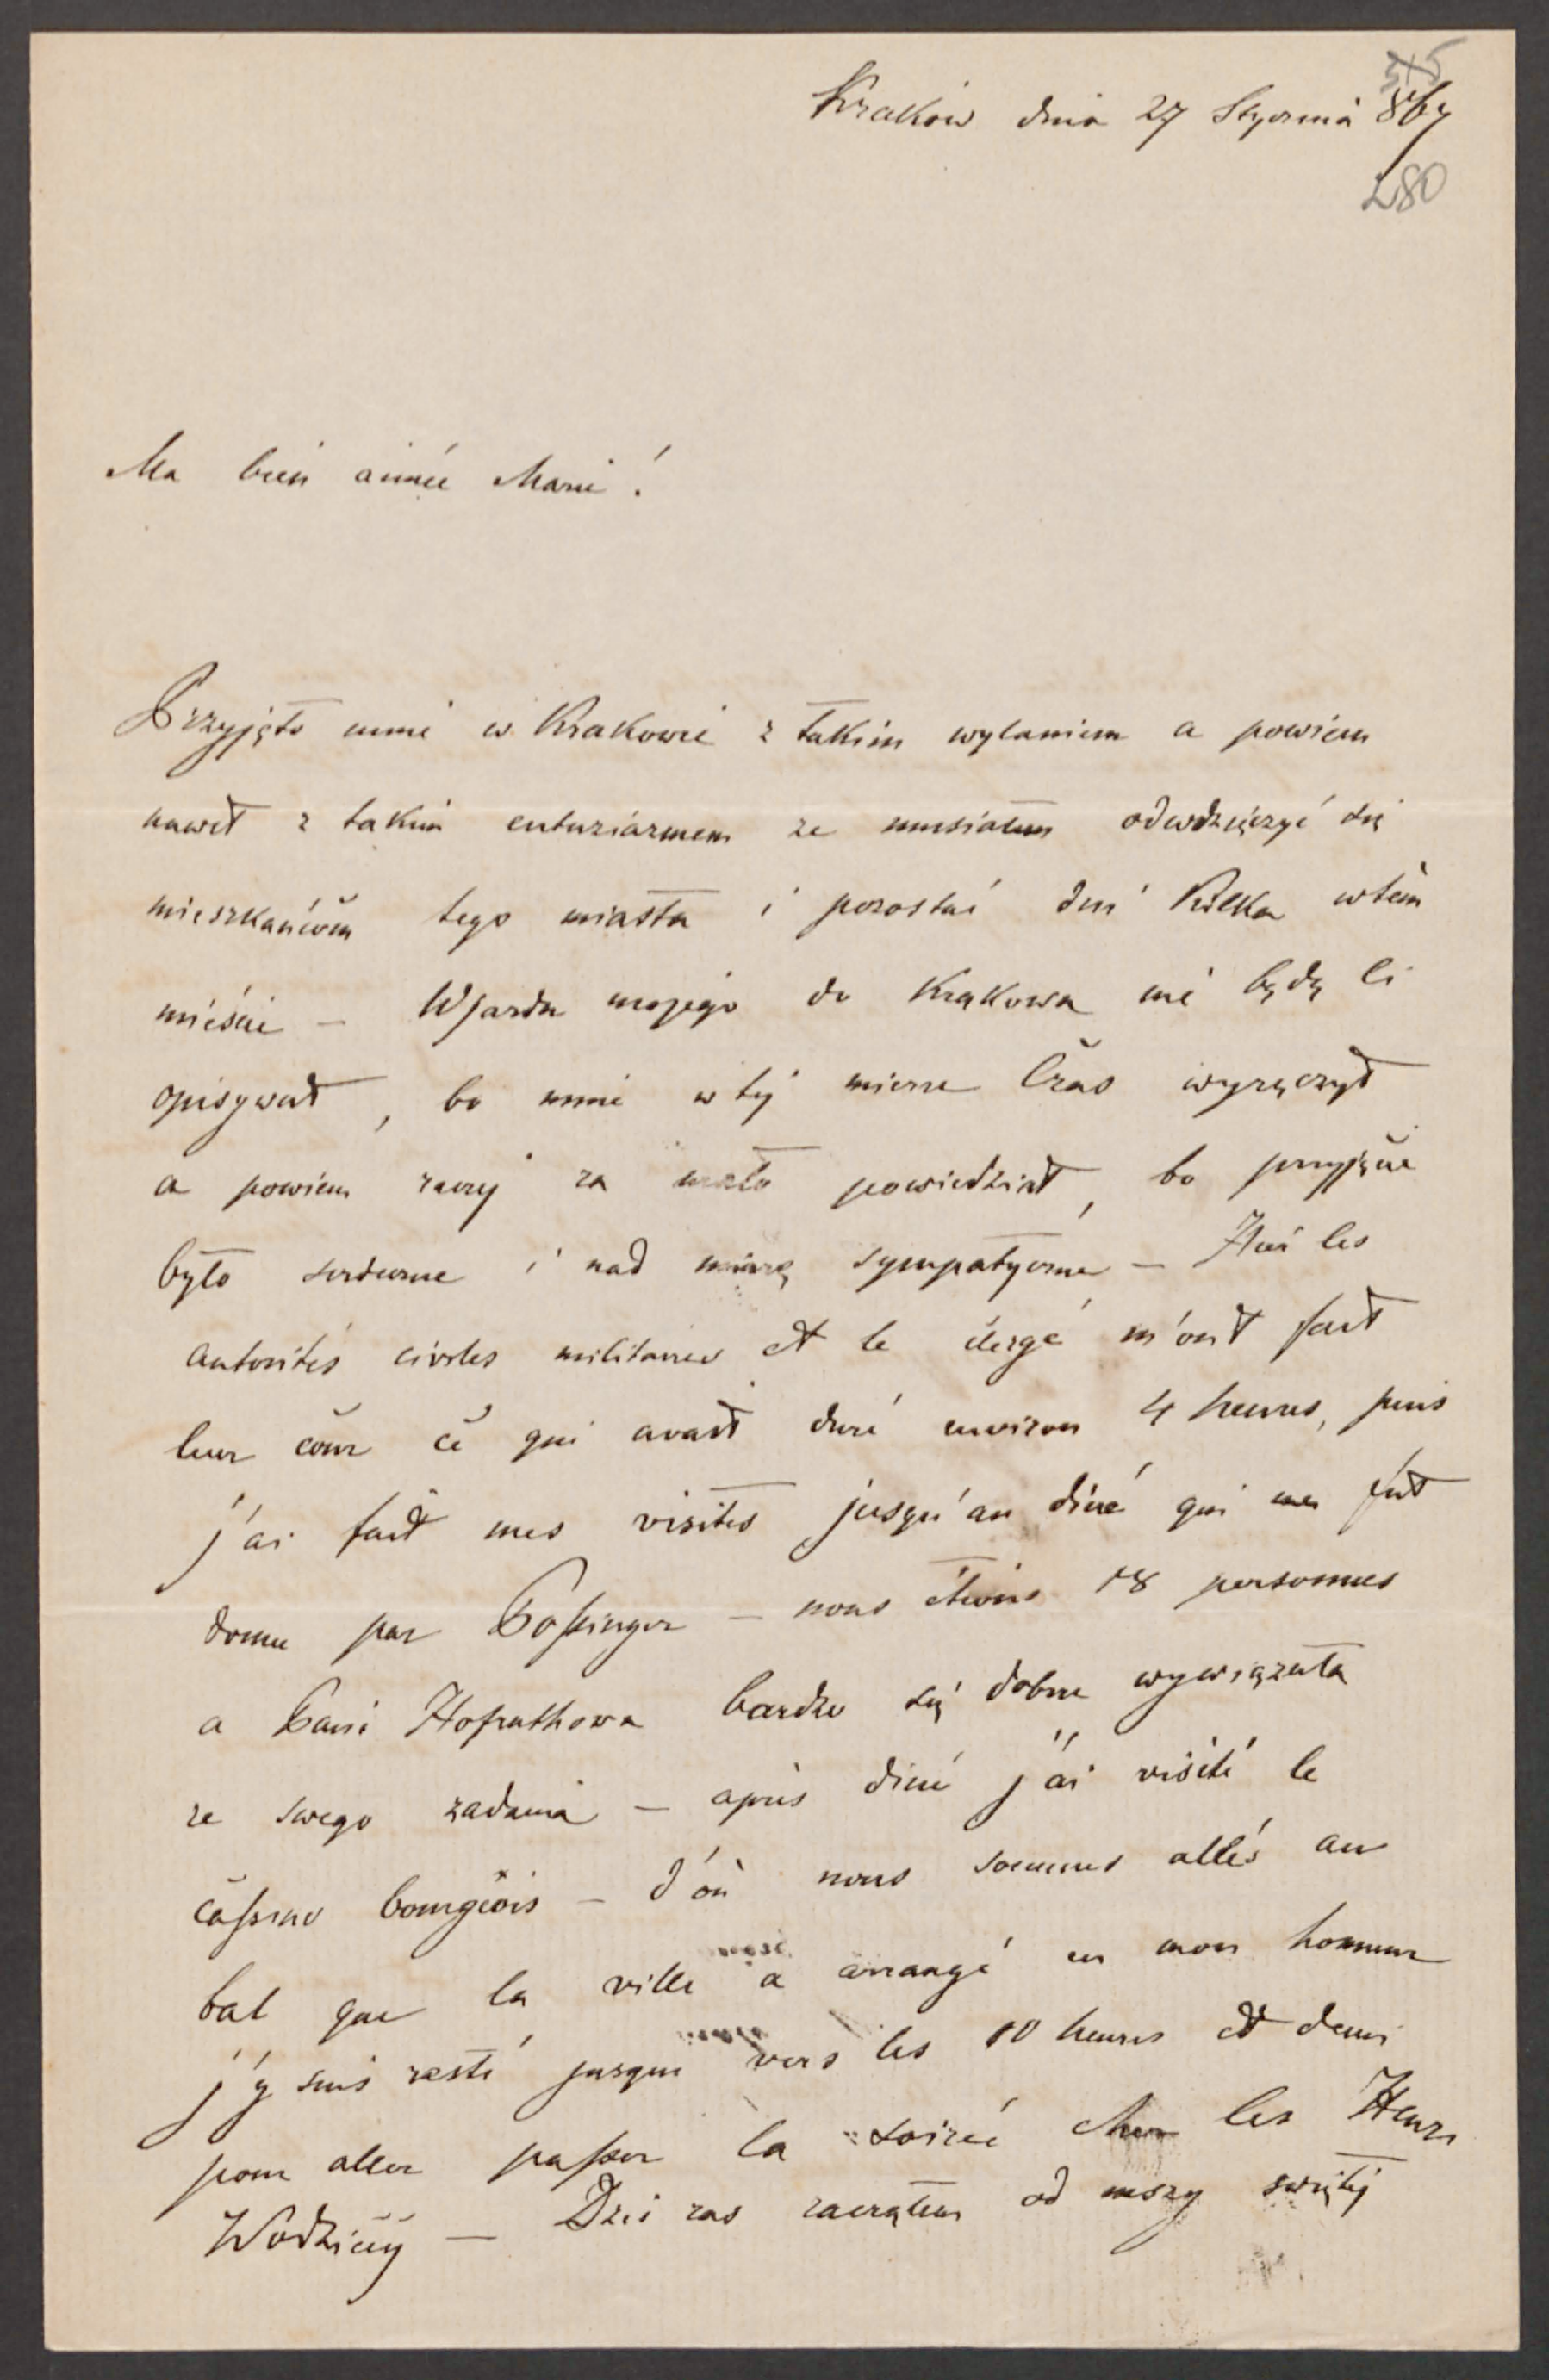 545
Kraków dnia 27 Stycznia 867
280
Ma bien aimée Marie!
Przyjęto mnie w Krakowie z takim wylaniem a powiem
nawet z takim entuziazmem ze musiałem odwdzięczyć się
mieszkańcom tego miasta i pozostać dni kilka w tem
mieście – Wjazdu mojego do Krakowa nie będę Ci
opisywał, bo mnie w tej mierze Czas wyręczył
a powiem raczej za mało powiedział, bo przyjęcie
było serdeczne i nad miarę sympatyczne – Hier les
autorités civiles militaires et le clergé m'ont fait
leur cour ce qui avait duré environ 4 heures, puis
j'ai fait mes visites jusqu'au diné qui me fut
donné par Possinger – nous étions 18 personnes
a Pani Hofrathowa bardzo się dobrze wywiązała
ze swego zadania – après diné j'ai visité le
cassino bourgeois – d'où nous sommes allés au
bal que la ville a arrangé en mon honneur
j'y suis resté jusque vers les 10 heures et demi
pour aller passer la soirée chez les Henri
Wodzicky – Dziś zas zacząłem od mszy swiętej